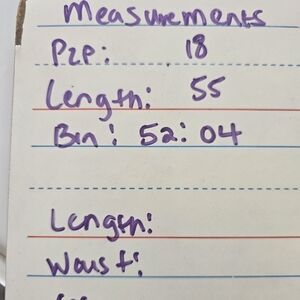 Measurements
P2P: 18
Length: 55
Bin: 52:04
Length:
Waist: